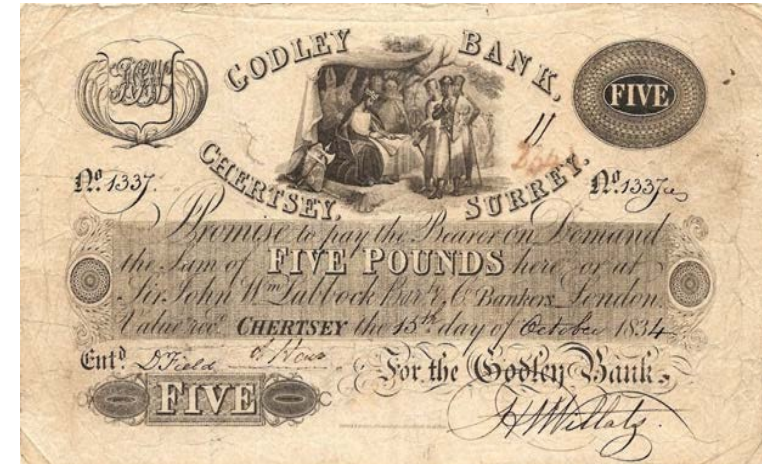 GODLEY BANK,
CHERTSEY, SURREY.
FIVE
11
No. 1337. No. 1337
Promise to pay the Bearer on Demand
the Sum of FIVE POUNDS here or at
Sir John Wm Lubbock Bart & Co Bankers London.
Value recd. CHERTSEY the 15th day of October 1834
Entd. D Field
For the Godley Bank,
FIVE